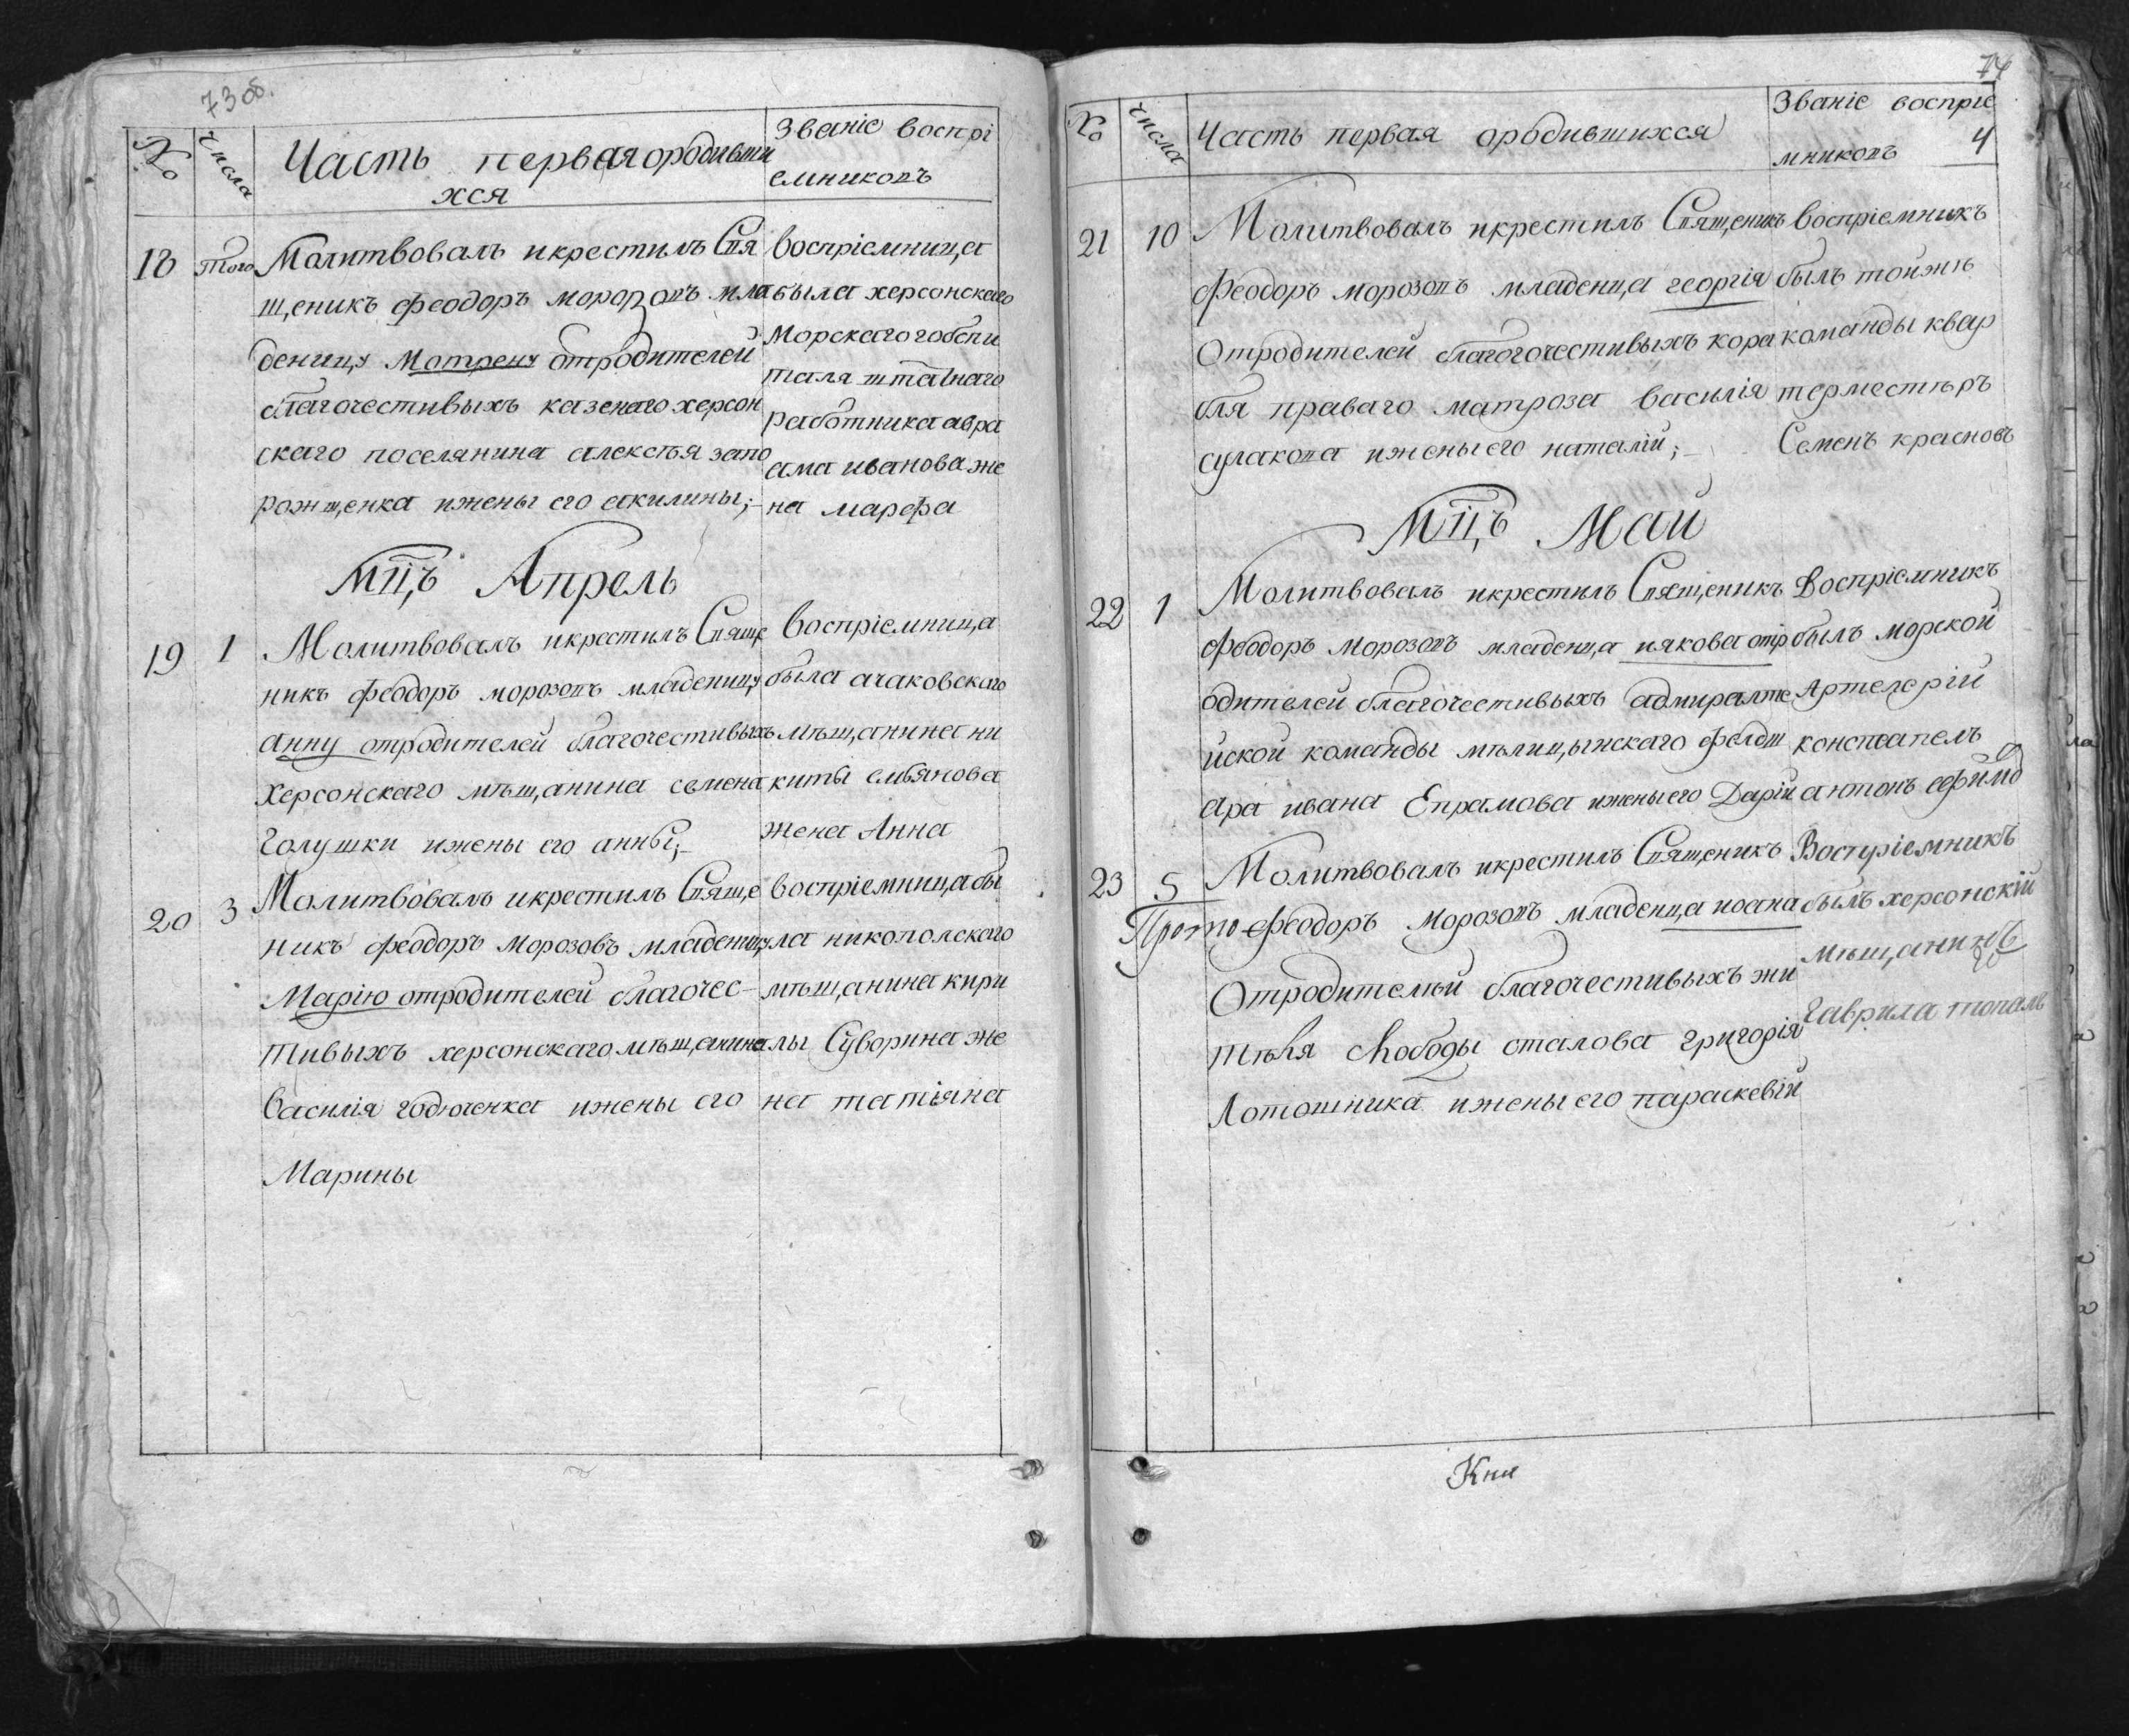 73 об.
№
Числа
Часть первая ородивши
хся
Званіе воспрі
емниковъ
18
того
Молитвовалъ икрестилъ Свя
щеникъ феодоръ морозовъ мла
деницу Матрену отродителей
благочестивыхъ казенаго херсон
скаго поселянина алексѣя запо
рожщенка ижены его акилины;
воспріемница
была херсонскаго
Морскаго гобспи
таля штатнаго
работника авра
ама иванова же
на марфа
Мцъ Апрель
19
1
Молитвовалъ икрестилъ Свяще
никъ феодоръ морозовъ младеницу
Анну отродителей благочестивыхъ
Херсонскаго мѣщанина семена
Голушки ижены его анны;
воспріемница
была ачаковскаго
мѣщанина ни
киты емьянова
жена Анна
20
3
Молитвовалъ икрестилъ Свяще
никъ феодоръ морозовъ младеницу
Марію отродителей благочес-
тивыхъ херсонскаго мѣщанина
Василія годюченка ижены его
Марины
воспріемница бы
ла никополскаго
мѣщанина кири
лы Суворина же
на татіяна
74
№
Числа
Часть первая ородившихся
Званіе воспріе
мниковъ
4
21
10
Молитвовалъ икрестилъ Священикъ
Феодоръ морозовъ младенца георгія
Отродителей благогочестивыхъ кора
бля праваго матроза василія
сулакова ижены его наталіи;
воспріемникъ
былъ тойжъ
команды квар
терместѣръ
Семенъ красновъ
Мцъ Маи
22
1
Молитвовалъ икрестилъ Священикъ
Феодоръ морозовъ младенца иякова отр
одителей благочестивыхъ адмиралте
йской команды мѣлицынскаго фелдш
ара ивана Епрамова ижены его Даріи
Воспріемникъ
былъ морской
Артелеріи
констапелъ
антонъ ефимо
23
5
Прото
Молитвовалъ икрестилъ Священикъ
Феодоръ морозовъ младенца иоана
Отродителѣй благочестивыхъ жи
тѣля слободы сталова григорія
Лотошника ижены его параскевіи
Воспріемникъ
былъ херсонскій
мѣщанинъ
Гаврила топалъ
Кни